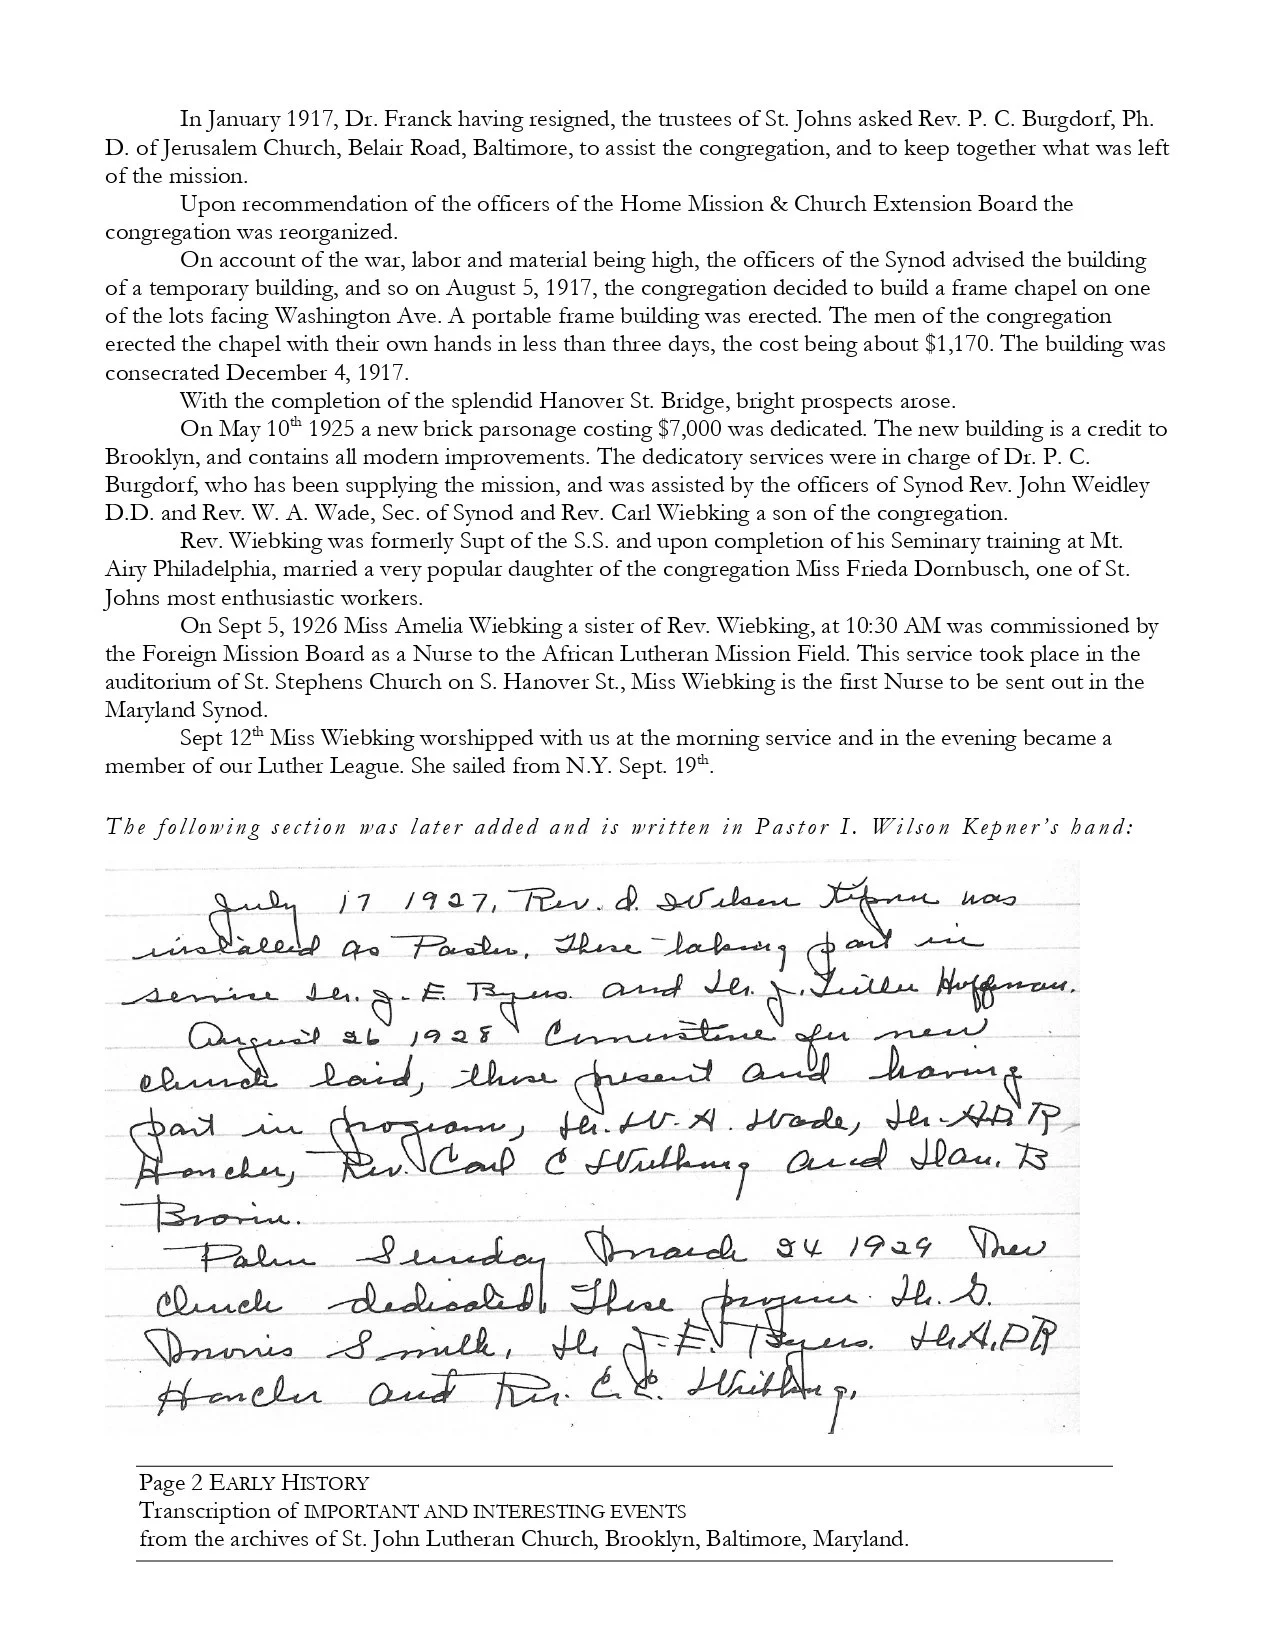 In January 1917, Dr. Franck having resigned, the trustees of St. Johns asked Rev. P. C. Burgdorf, Ph.
D. of Jerusalem Church, Belair Road, Baltimore, to assist the congregation, and to keep together what was left
of the mission.
Upon recommendation of the officers of the Home Mission & Church Extension Board the
congregation was reorganized.
On account of the war, labor and material being high, the officers of the Synod advised the building
of a temporary building, and so on August 5, 1917, the congregation decided to build a frame chapel on one
of the lots facing Washington Ave. A portable frame building was erected. The men of the congregation
erected the chapel with their own hands in less than three days, the cost being about $1,170. The building was
consecrated December 4, 1917.
With the completion of the splendid Hanover St. Bridge, bright prospects arose.
On May 10th 1925 a new brick parsonage costing $7,000 was dedicated. The new building is a credit to
Brooklyn, and contains all modern improvements. The dedicatory services were in charge of Dr. P. C.
Burgdorf, who has been supplying the mission, and was assisted by the officers of Synod Rev. John Weidley
D.D. and Rev. W. A. Wade, Sec. of Synod and Rev. Carl Wiebking a son of the congregation.
Rev. Wiebking was formerly Supt of the S.S. and upon completion of his Seminary training at Mt.
Airy Philadelphia, married a very popular daughter of the congregation Miss Frieda Dornbusch, one of St.
Johns most enthusiastic workers.
On Sept 5, 1926 Miss Amelia Wiebking a sister of Rev. Wiebking, at 10:30 AM was commissioned by
the Foreign Mission Board as a Nurse to the African Lutheran Mission Field. This service took place in the
auditorium of St. Stephens Church on S. Hanover St., Miss Wiebking is the first Nurse to be sent out in the
Maryland Synod.
Sept 12th Miss Wiebking worshipped with us at the morning service and in the evening became a
member of our Luther League. She sailed from N.Y. Sept. 19th.
The following section was later added and is written in Pastor I. Wilson Kepner's hand:
July 17 1927, Rev. I. Wilson Kepner was
installed as Pastor, those taking part in
service Dr. J. E. Byers. and Dr. J. Luther Hoffman.
August 26 1928 Cornerstone for new
church laid, those present and having
part in program, Dr. W. A. Wade, Dr. A D R
Hancher, Rev. Carl C Wiebking and Hon. B
Palm Sunday March 24 1929 New
Church dedicated. Those Dr. G.
Morris Smith, Dr J. E. Byers. Dr A. D R
Hancher and Rev. C. C. Wiebking.
Page 2 EARLY HISTORY
Transcription of IMPORTANT AND INTERESTING EVENTS
from the archives of St. John Lutheran Church, Brooklyn, Baltimore, Maryland.